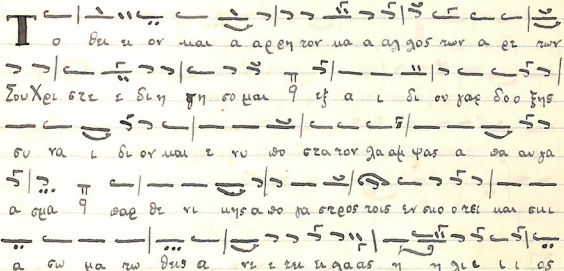 Το θει κ ον και α αρρη τον κα α αλ λος των α ρε των
Σου Χρι στε ε δι η γη σο μαι q εξ α ι δι ου γαρ δο ο ξης
συ να ι δι ον και ε νυ πο στα τον λα αμ ψας α πα αυ γα
α σμα q παρ θε νι κης α πο γα στρος τοις εν σκο ο τει και σκι
α σω μα τω θεις α νε ε τει ει λα ας η η λι ι ι ος